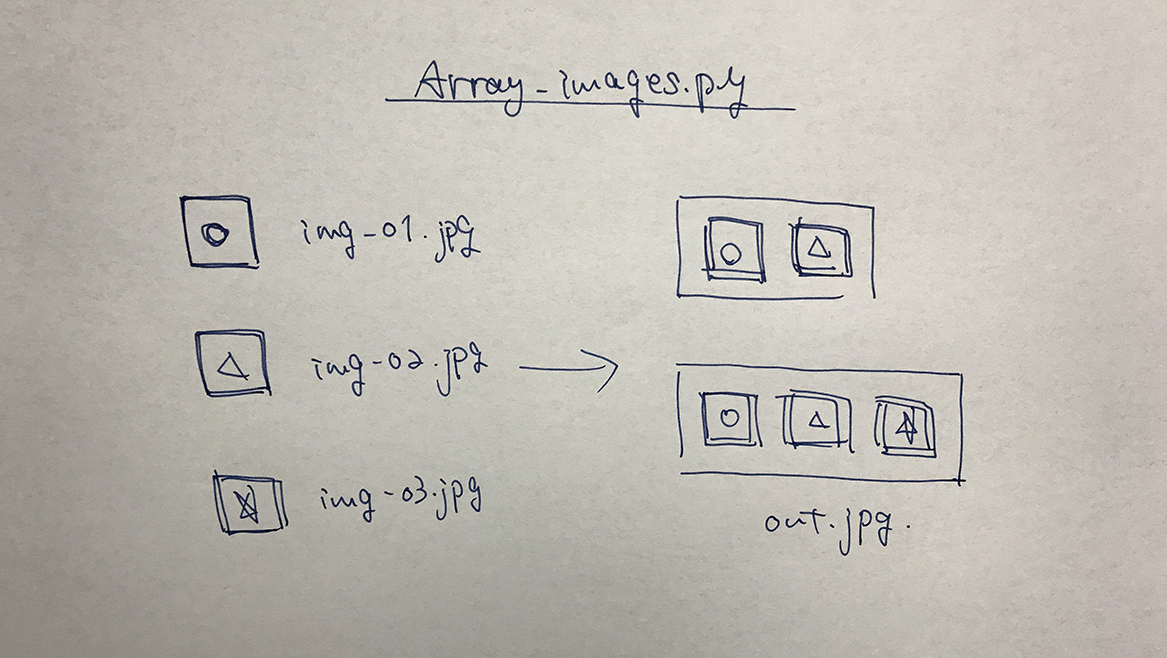 Array_images.py
img-01.jpg
img-02.jpg
img-03.jpg
out.jpg.